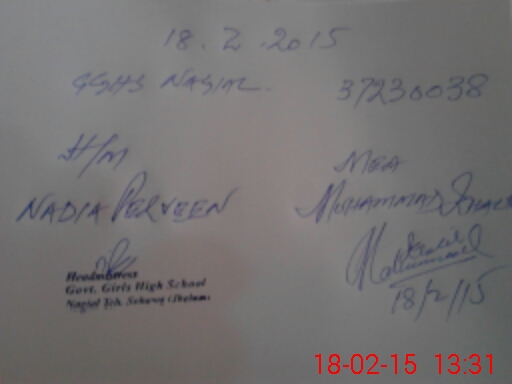 18.2.2015
GGHS NAGIAL. 37230038
H/M
NADIA PERVEEN
MEA
MUHAMMAD
Headmistress
Govt. Girls High School
Nagial Teh. Sohawa (Jhelum)
18/2/15
18-02-15 13:31